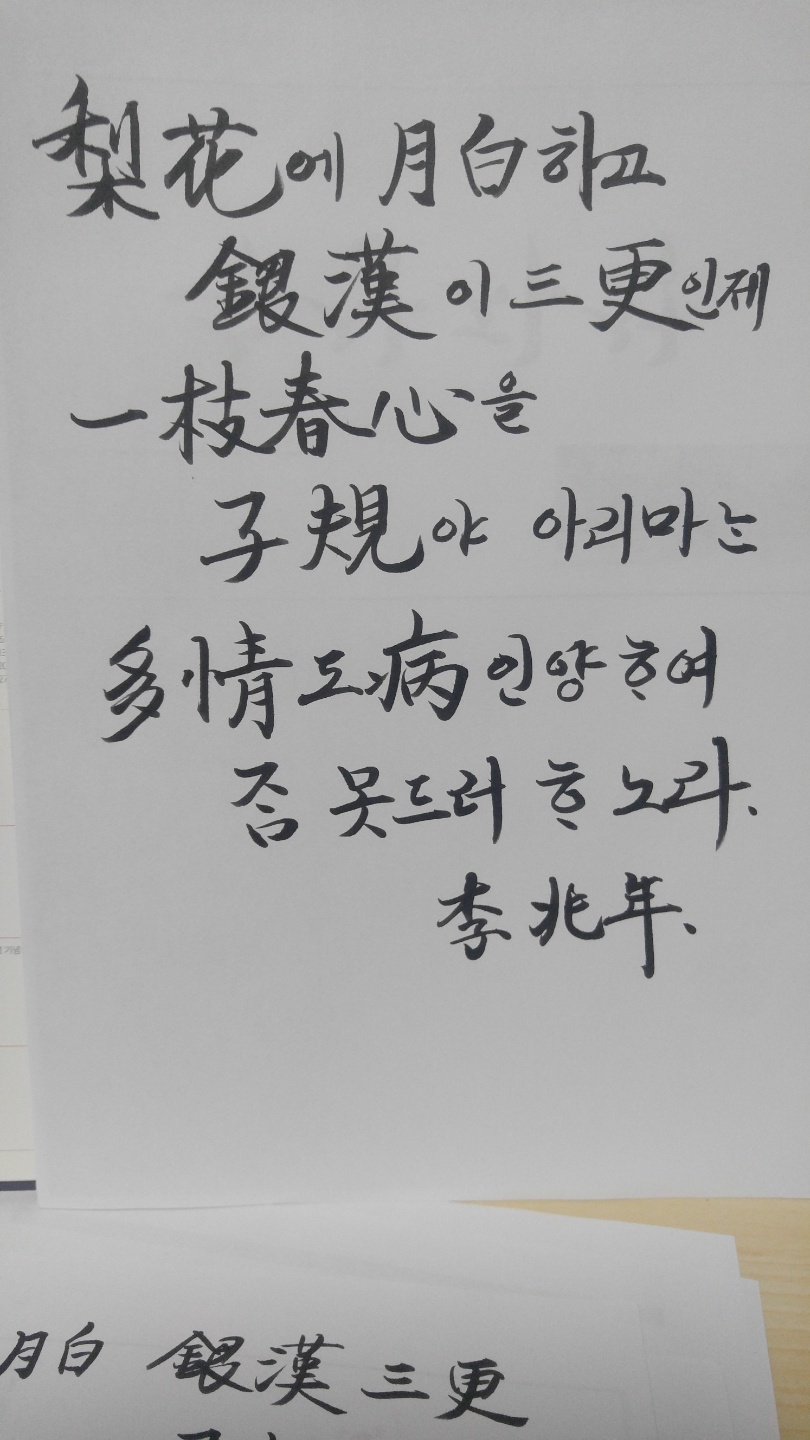 梨花에 月白하고
銀漢이 三更인제
一枝春心을
子規야 아리마는
多情도 病인양ᄒᆞ여
ᄌᆞᆷ 못드러 ᄒᆞ노라.
李兆年.
月白 銀漢 三更